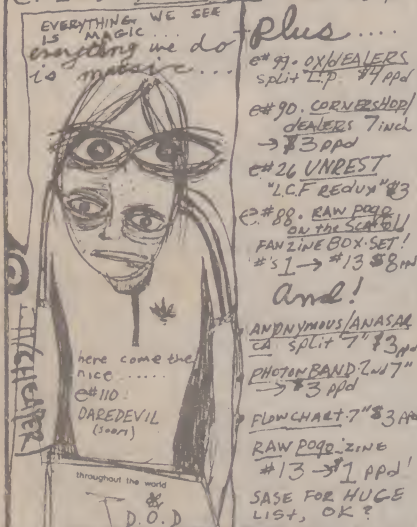 EVERYTHING WE SEE
IS MAGIC...
everything we do
is music...
here come the
nice......
e#110:
DAREDEVIL
(soon)
throughout the world
D.O.D
plus....
e#99. OX/DEALERS
split L.P. $4 ppd
e#90. CORNERSHOP/
DEALERS 7inch
→ $3 ppd
e#26 UNREST
"L.C.F REDUX" $3
e#88. RAW POGO
on the SCAFFOLD
FANZINE BOX-SET!
#'s 1 → #13 $8 ppd
and!
ANONYMOUS/ANASAR
CA split 7" $3 ppd
PHOTON BAND 2nd 7"
→ $3 ppd
FLOWCHART 7" $3 ppd
RAW POGO ZINE
#13 → $1 ppd!
SASE FOR HUGE
LIST, OK?